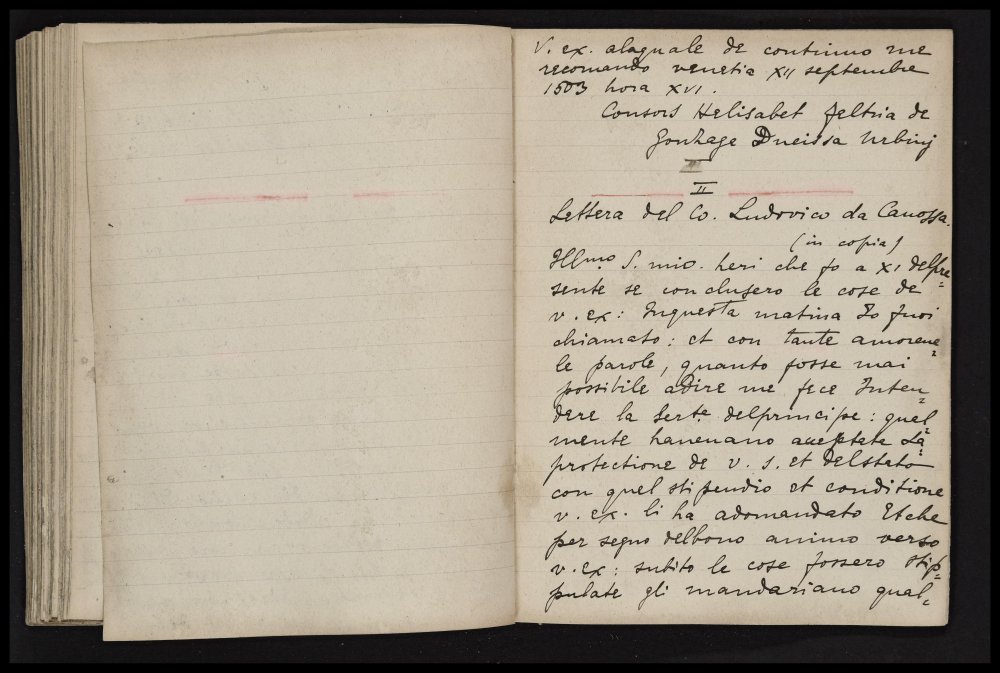 V. ex. alaquale de continuo me
recomando venetia XII septembre
1503 hora XVI.
Consors Helisabet feltria de
Gonzage Dneissa Urbinj
II
II
Lettera del Co. Ludovico da Canossa.
(in copia)
Illmo. S. mio. heri che fo a XI delpre=
sente se conclusero le cose de
v. ex: Inquesta matina Io fuoi
chiamato: et con tante amoreue=
le parole, quanto fosse mai
possibile adire me fece Inten=
dere la Serte delprincipe: quel=
mente haneuano acceptate La=
protectione de v. s. et delstato
con quel stipendio et conditione
v. ex. li ha adomandato Et che
per segno delbono animo verso
v. ex: subito le cose fossero stip=
pulate gli mandariano qual=